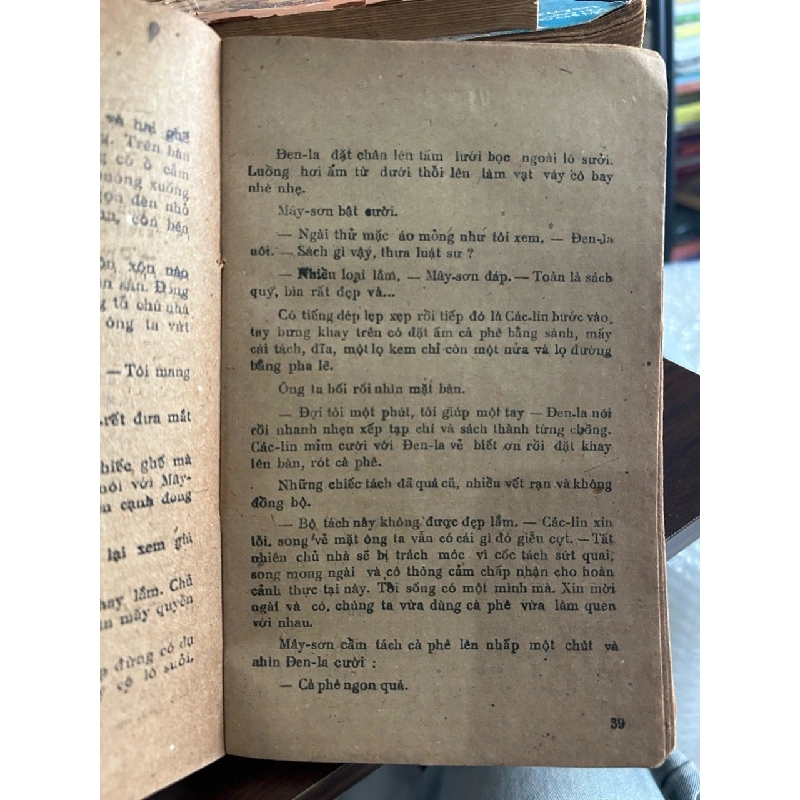 và hai ghế
Trên bàn
có ổ cắm
xuống
đèn nhỏ
còn bên
xộn nào
sàn. Đồng
tỏ chủ nhà
ông ta vứt
— Tôi mang
rất đưa mắt
chiếc ghế mà
nói với Mây-
cạnh đong
lại xem giá
hay lắm. Chủ
mấy quyển
đừng có dự
vẻ lò sưởi.
Đen-la đặt chân lên tấm lưới bọc ngoài lò sưởi.
Luồng hơi ấm từ dưới thổi lên làm vạt váy cô bay
nhè nhẹ.
Mây-sơn bật cười.
— Ngài thử mặc áo mỏng như tôi xem, — Đen-la
nói. — Sách gì vậy, thưa luật sư ?
— Nhiều loại lắm, — Mây-sơn đáp. — Toàn là sách
quý, bìa rất đẹp và...
Có tiếng dép lẹp xẹp rồi tiếp đó là Các-lin bước vào,
tay bưng khay trên có đặt ấm cà phê bằng sành, mấy
cái tách, đĩa, một lọ kem chỉ còn một nửa và lọ đường
bằng pha lê.
Ông ta bối rối nhìn mặt bàn.
— Đợi tôi một phút, tôi giúp một tay — Đen-la nói
rồi nhanh nhẹn xếp tạp chí và sách thành từng chồng.
Các-lin mỉm cười với Đen-la vẻ biết ơn rồi đặt khay
lên bàn, rót cà phê.
Những chiếc tách đã quá cũ, nhiều vết rạn và không
đồng bộ.
— Bộ tách này không được đẹp lắm. — Các-lin xin
lỗi, song vẻ mặt ông ta vẫn có cái gì đó giễu cợt. — Tất
nhiên chủ nhà sẽ bị trách móc vì cốc tách sứt quai,
song mong ngài và cô thông cảm chấp nhận cho hoàn
cảnh thực tại này. Tôi sống có một mình mà. Xin mời
ngài và cô, chúng ta vừa dùng cà phê vừa làm quen
với nhau.
Mây-sơn cầm tách cà phê lên nhấp một chút và
nhìn Đen-la cười :
— Cà phê ngon quá.
39